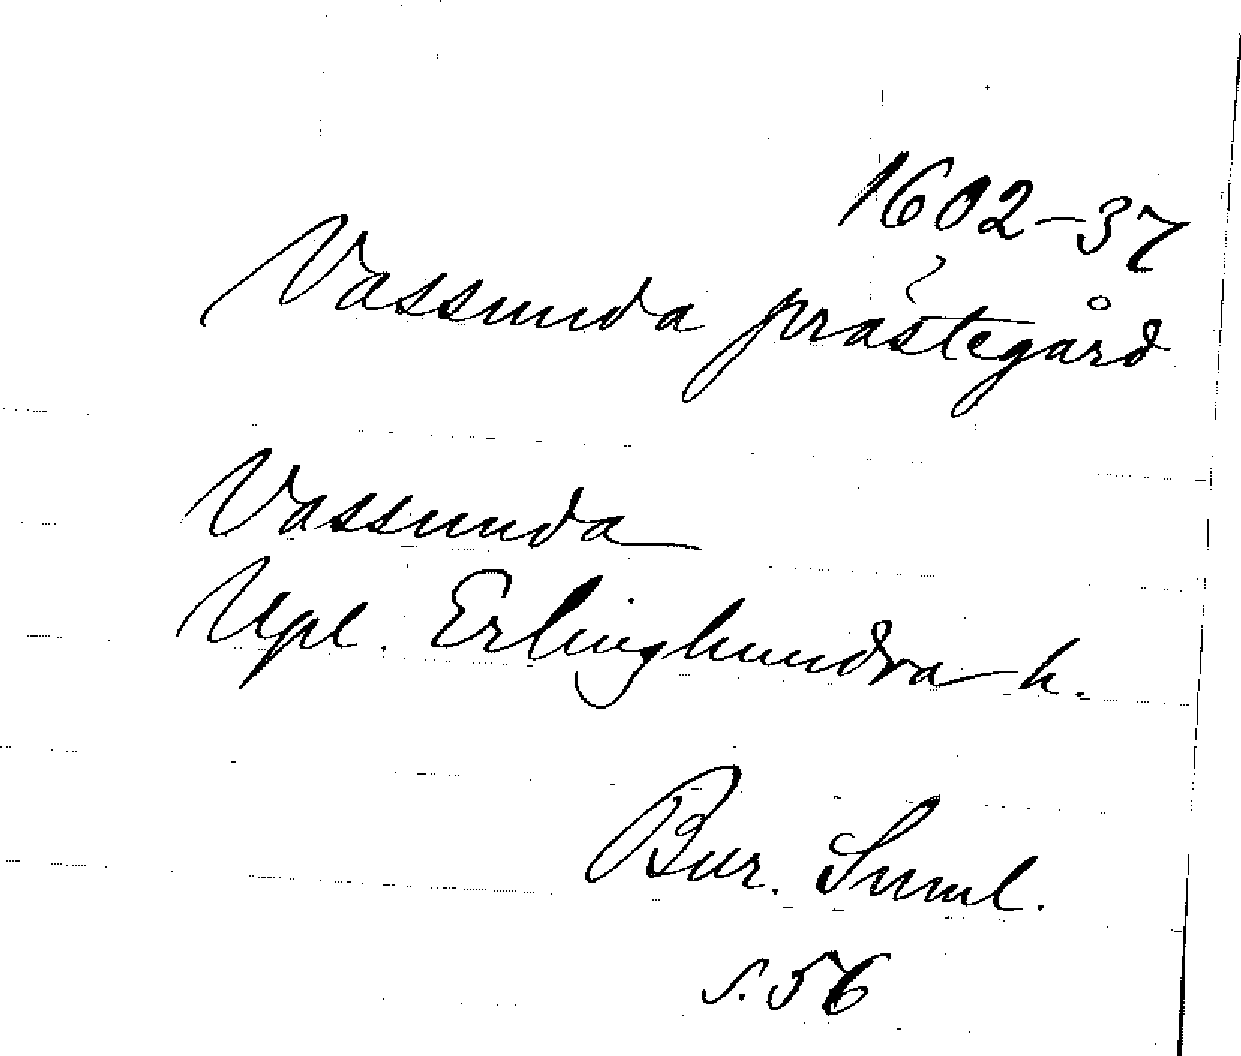 1602-37
Vassunda prästegård
Vassunda
Upl. Erlinghundra h.
Bur. Suml.
s. 56